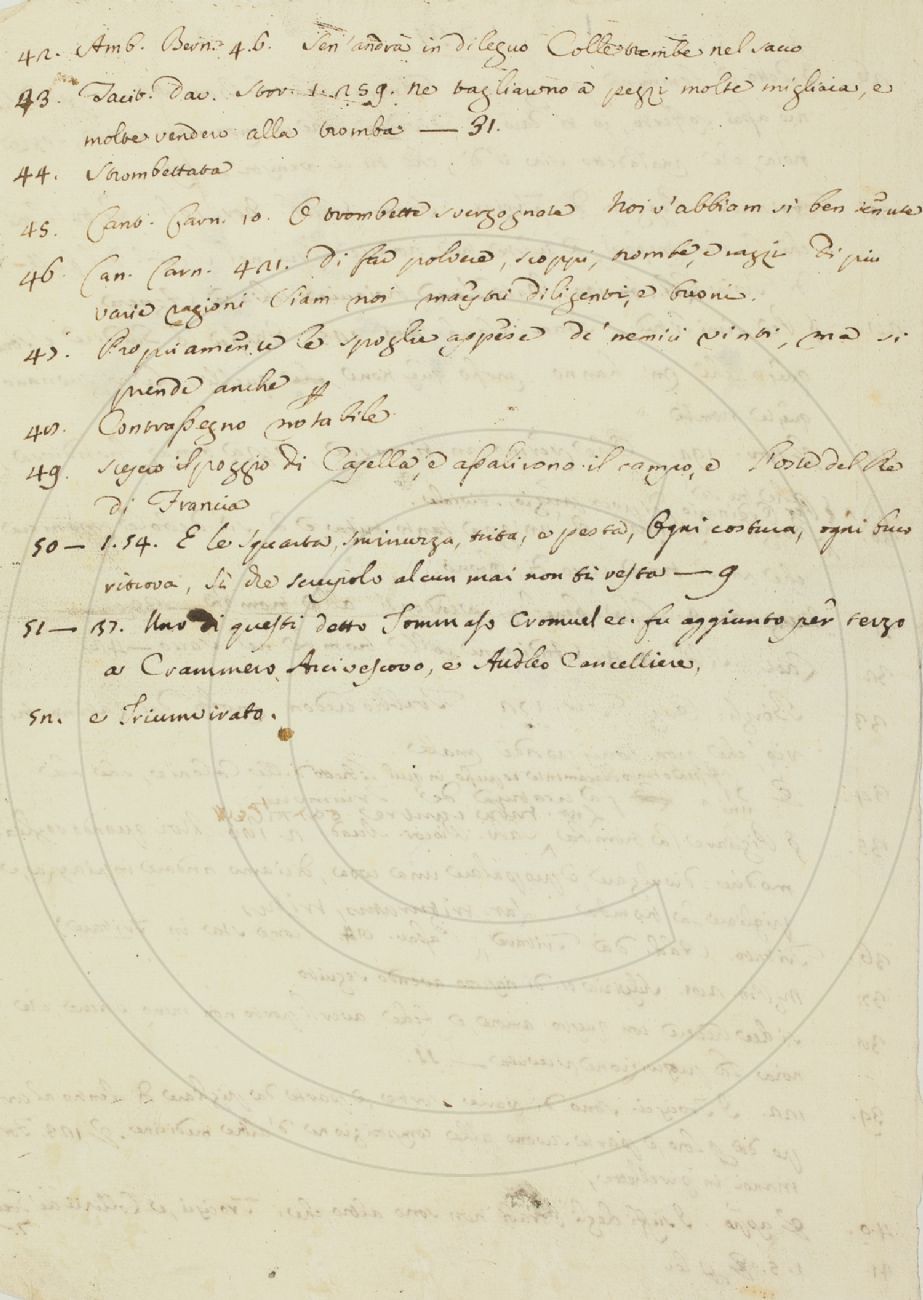 42. Amb. Bern. 4.6. Sen'andrà in dileguo Colle trombe nel sacco
43. Tacit. Dav. Stor. 1. 259. ne tagliarono a pezzi molte migliaia, e
molte vendero alla tromba — 31.
44. Strombettata
45. Cant. Carn. 10. O trombette svergognate Noi v'abbiam si ben tenute
46. Can. Carn. 421. Di far polvere, scoppi, trombe, e razzi Di piu
varie ragioni Siam noi maestri diligenti, e buoni.
47. Propriamente le spoglie appese de' nemici vinti, ma si
prende anche
48. Contrassegno notabile
49. il poggio di Casella, e assalirono il campo, e l'oste del Re
di Francia
50 — 1.54. E le squarta, sminuzza, trita, e pesta, Ogni costura, ogni buco
ritrova, Si che scusciolo alcun mai non ti resta — 9
51 — 37. Uno di questi detto Tommaso Cromuel ec. fu aggiunto per terzo
a Crammero Arcivescovo, e Audleo Cancelliere,
52. e Triumvirato.